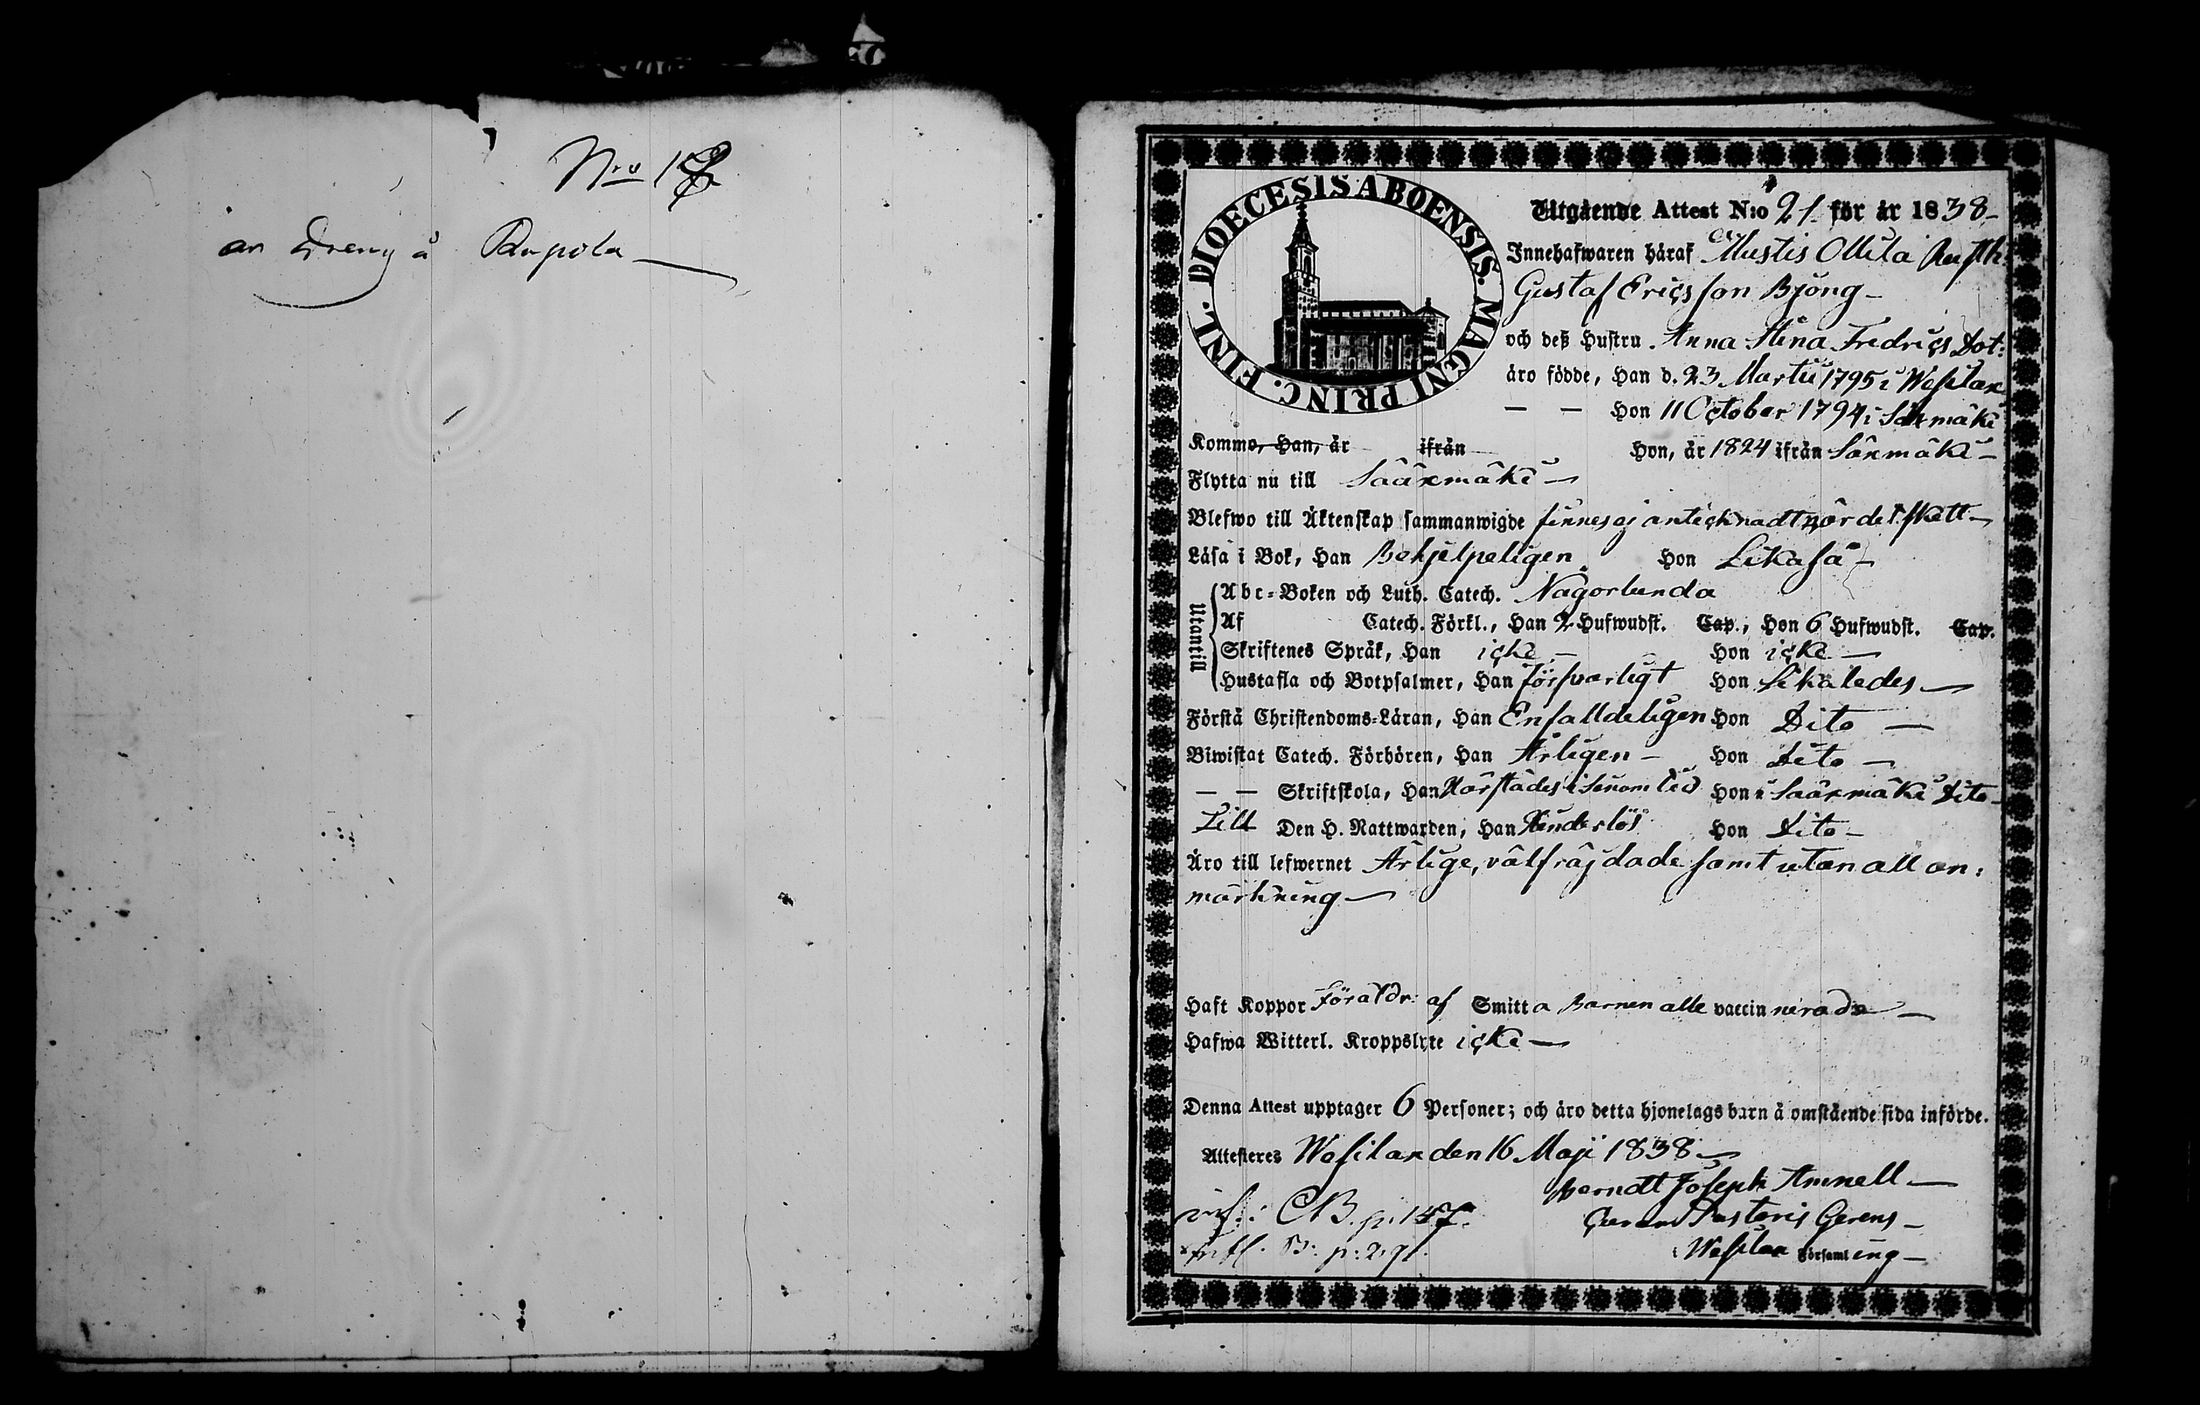 Nro 18
en Dreng å Papola
DIOECESIS ABOENSIS. MAGNI PRINC. FINL.
Utgående Attest N:o 21 för år 1838
Innehafwaren häraf Mustis Ollila
Gustaf Ericsson Bjong
och deß Hustru Anna Stina Fredrics Dot:
äro födde, Han d. 23 Martii 1795 i Wesilax
— — Hon 11 October 1794 i Säxmäki
Komme, Han, år ifrån Hon, år 1824 ifrån Säxmäki
Flytta nu till Sääxmäki
Blefwo till Äktenskap sammanwigde finnes ej antecknadt når det skett
Läsa i Bok, Han Behjelpeligen Hon Likaså
Utantill
Abc-Boken och Luth. Catech. Någorlunda
Af Catech. Förkl., Han 2 Hufwudst. Cap., Hon 6 Hufwudst. Cap.
Skriftenes Språk, Han icke Hon icke
Hustafla och Botpsalmer, Han försvarligt Hon Likaledes
Förstå Christendoms-Läran, Han Enfalldeligen Hon Dito
Biwistat Catech. Förhören, Han Årligen Hon Dito
— — Skriftskola, Han Härstädes i sinom tid Hon i Sääxmäki Dito
Till Den H. Nattwarden, Han Hinderlös Hon Dito
Äro till lefwernet Ärlige, välfräjdade samt utan all an:
märkning
Haft Koppor Föräldr: af Smitta Barnen alle vaccinnerade
Hafwa Witterl. Kroppslyte icke
Denna Attest upptager 6 Personer; och äro detta hjonelags barn å omstående sida införde.
Attesteras Wesilax den 16 Maji 1838
Berndt Joseph Amnell
Curam Pastoris Gerens
i Wesilax Församling
CB. p. 157.
Infl. B: p: 291.